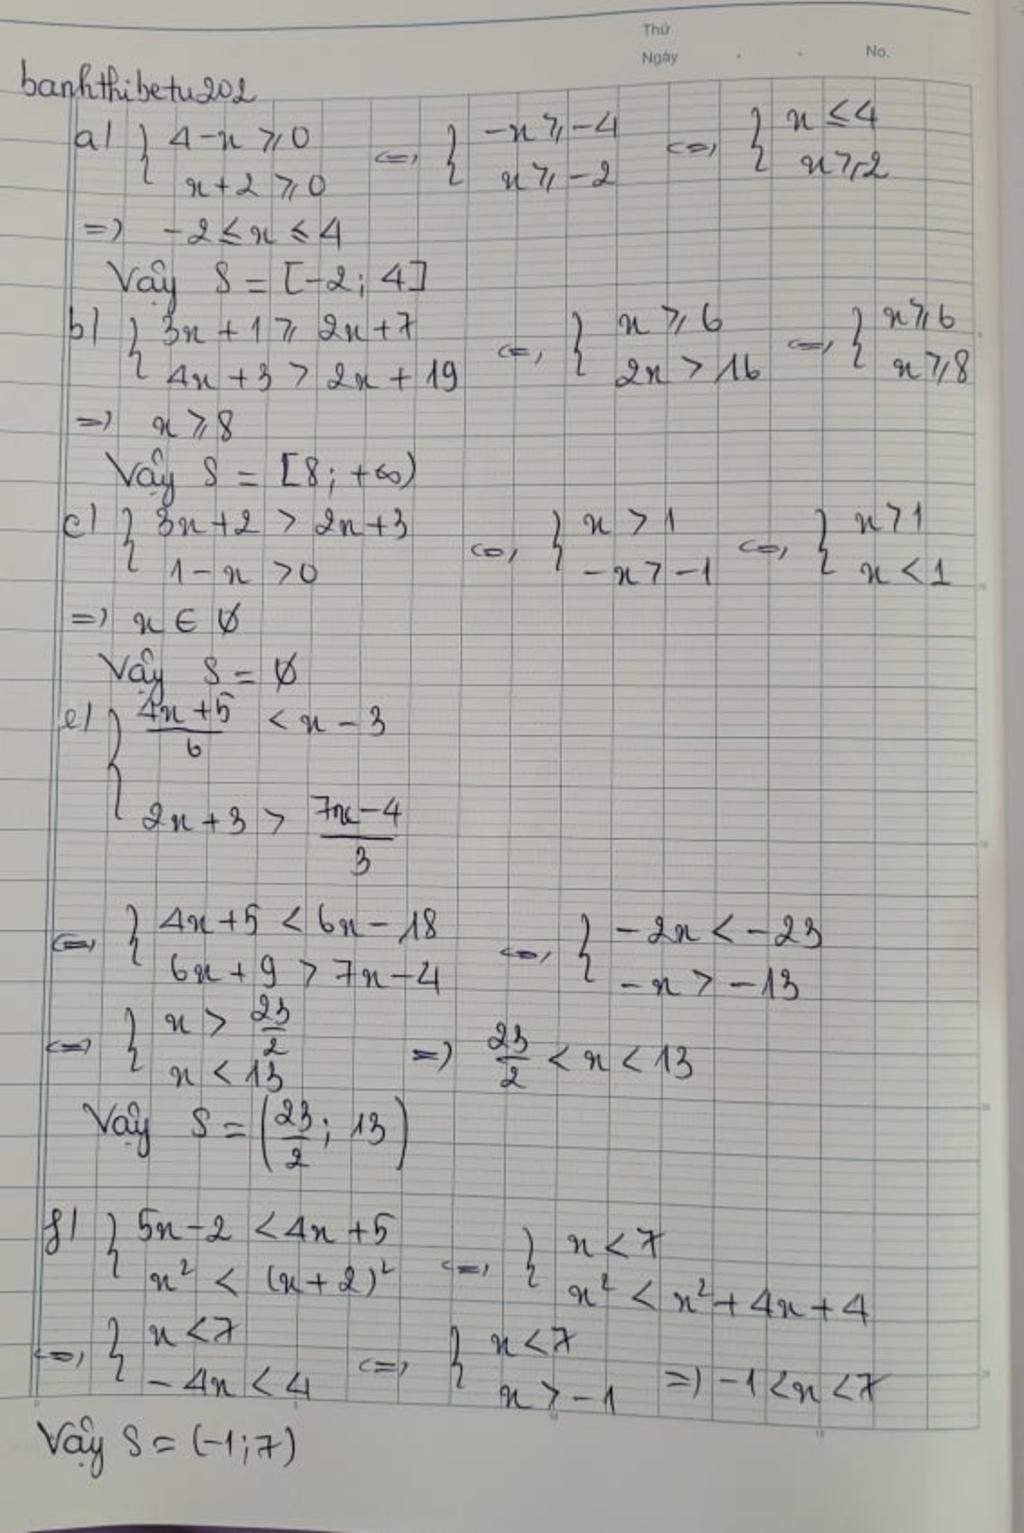 Thứ
Ngày . . No.
banhthibetu202
a) { 4-x ⩾ 0 <=> { -x ⩾ -4 <=> { x ≤ 4
x+2 ⩾ 0 x ⩾ -2 x ⩾ 2
=> -2 ≤ x ≤ 4
Vậy S = [-2; 4]
b) { 3x + 1 ⩾ 2x + 7 <=> { x ⩾ 6 <=> { x ⩾ 6
4x + 3 > 2x + 19 2x > 16 x ⩾ 8
=> x ⩾ 8
Vậy S = [8; +∞)
c) { 3x + 2 > 2x + 3 <=> { x > 1 <=> { x > 1
1 - x > 0 -x > -1 x < 1
=> x ∈ ∅
Vậy S = ∅
e) { (4x + 5)/6 < x - 3
2x + 3 > (7x - 4)/3
<=> { 4x + 5 < 6x - 18 <=> { -2x < -23
6x + 9 > 7x - 4 -x > -13
<=> { x > 23/2 => 23/2 < x < 13
x < 13
Vậy S = (23/2; 13)
f) { 5x - 2 < 4x + 5 <=> { x < 7
x² < (x + 2)² x² < x² + 4x + 4
<=> { x < 7 <=> { x < 7
-4x < 4 x > -1 => -1 < x < 7
Vậy S = (-1; 7)